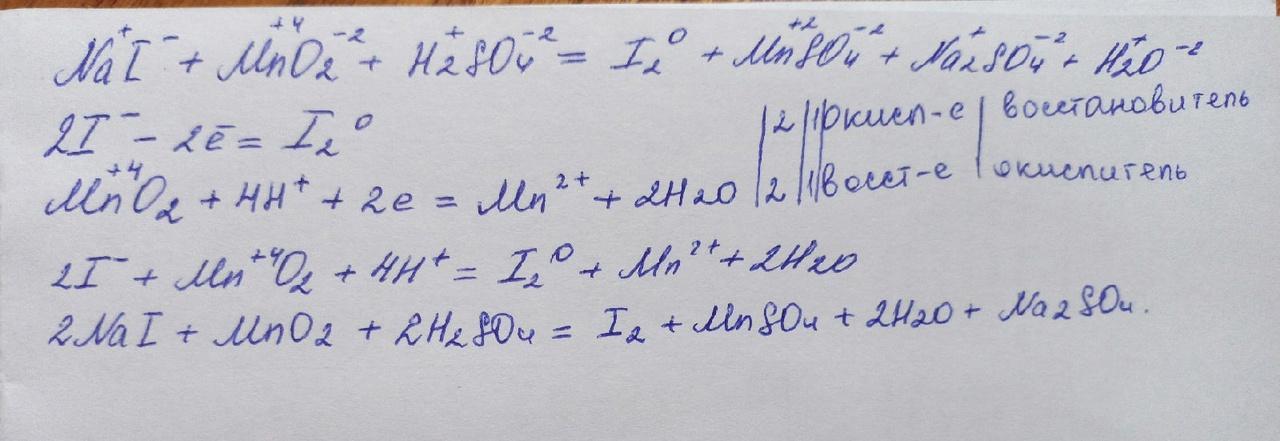 Na⁺I⁻ + Mn⁺⁴O₂⁻² + H₂⁺SO₄⁻² = I₂⁰ + Mn⁺²SO₄⁻² + Na₂⁺SO₄⁻² + H₂⁺O⁻²
2I⁻ - 2ē = I₂⁰ |2||1|окисл-е | восстановитель
Mn⁺⁴O₂ + 4H⁺ + 2e = Mn²⁺ + 2H₂O |2||1|восст-е | окислитель
2I⁻ + Mn⁺⁴O₂ + 4H⁺ = I₂⁰ + Mn²⁺ + 2H₂O
2NaI + MnO₂ + 2H₂SO₄ = I₂ + MnSO₄ + 2H₂O + Na₂SO₄.